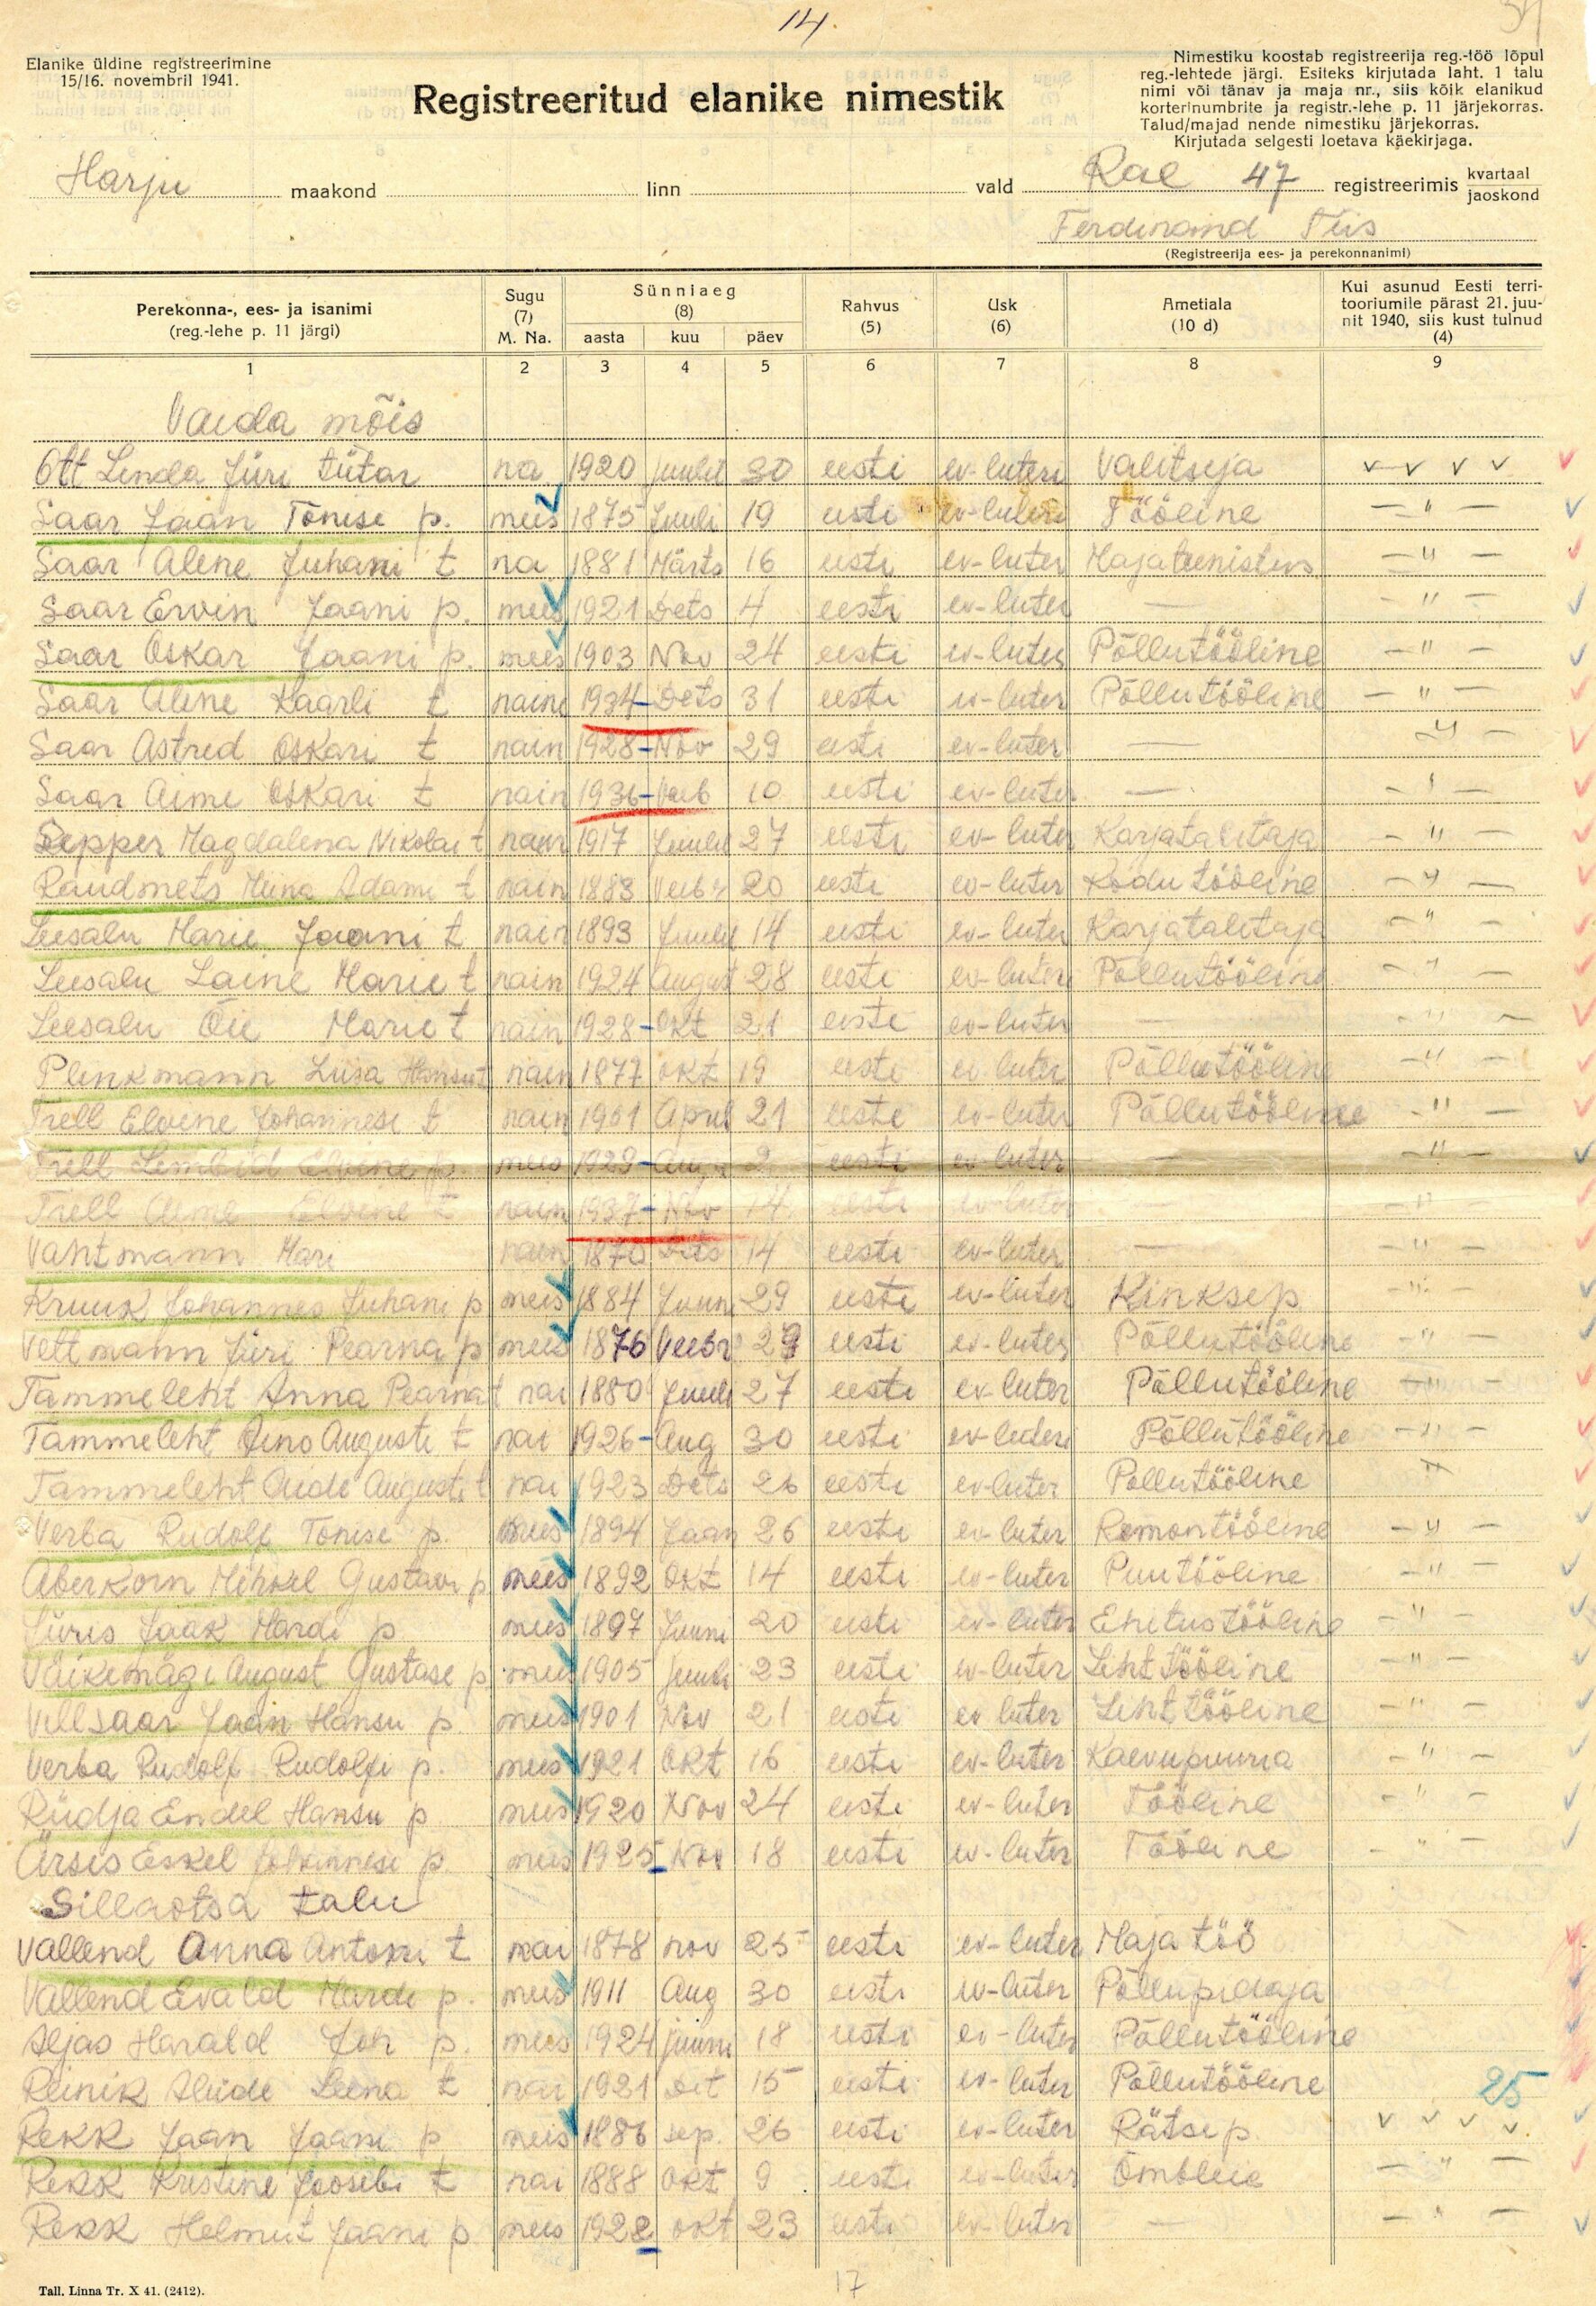 14.
Elanike üldine registreerimine
15/16. novembril 1941.
Registreeritud elanike nimestik
Nimestiku koostab registreerija reg.-töö lõpul
reg.-lehtede järgi. Esiteks kirjutada laht. 1 talu
nimi või tänav ja maja nr., siis kõik elanikud
korterinumbrite ja registr.-lehe p. 11 järjekorras.
Talud/majad nende nimestiku järjekorras.
Kirjutada selgesti loetava käekirjaga.
Harju maakond linn vald Rae 47 registreerimis kvartaal jaoskond
Ferdinand Tiis
(Registreerija ees- ja perekonnanimi)
Perekonna-, ees- ja isanimi (reg.-lehe p. 11 järgi) Sugu (7) M. Na. Sünniaeg (8) aasta kuu päev Rahvus (5) Usk (6) Ametiala (10 d) Kui asunud Eesti territooriumile pärast 21. juunit 1940, siis kust tulnud (4)
1 2 3 4 5 6 7 8 9
Vaida mõis
Ott Linda Jüri tütar na 1920 juuli 30 eesti ev-luteri Valitseja v v v v
Saar Jaan Tõnise p. mees 1875 Juuli 19 eesti ev-luteri Tööline - " -
Saar Alene Juhani t na 1881 Märts 16 eesti ev-luter Majateenistus - " -
Saar Ervin Jaani p. mees 1921 Dets 4 eesti ev-luter — - " -
Saar Oskar Jaani p. mees 1903 Nov 24 eesti ev-luter Põllutööline - " -
Saar Aline Kaarli t naine 1934 - Dets 31 eesti ev-luter Põllutööline - " -
Saar Astred Oskari t nain 1928 - Nov 29 eesti ev-luter — " -
Saar Aime Oskari t nain 1936 - Veeb 10 eesti ev-luter — - " -
Sepper Magdalena Nikolai t nain 1917 Juuli 27 eesti ev-luter Karjatalitaja - " -
Raudmets Miina Adami t nain 1883 Veebr 20 eesti ev-luter Kodutööline - " -
Leesalu Marie Jaani t nain 1893 Juuli 14 eesti ev-luter Karjatalitaja - " -
Leesalu Laine Marie t nain 1924 August 28 eesti ev-luter Põllutööline - " -
Leesalu Õie Marie t nain 1928 - Okt 21 eesti ev-luter — - " -
Plinkmann Liisa Hansu t nain 1877 okt 19 eesti ev luter Põllutööline - " -
Trell Elvine Johannese t nain 1901 April 21 eesti ev-luter Põllutööline - " -
Trell Lembid Elvine p. mees 1929 - Aug 2 eesti ev-luter — - " -
Trell Aime Elvine t nain 1937 - Nov 14 eesti ev-luter — - " -
Vahtmann Mari nain 1870 Dets 14 eesti ev-luter — - " -
Kruuk Johannes Juhani p mees 1884 Juuni 29 eesti ev-luter Kinksep - " -
Veltmann Jüri Pearna p mees 1876 Veebr 29 eesti ev-luter Põllutööline - " -
Tammeleht Anna Pearna t nai 1880 Juuli 27 eesti ev-luter Põllutööline - " -
Tammeleht Aino Augusti t nai 1926 - Aug 30 eesti ev-luteri Põllutööline - " -
Tammeleht Aide Augusti t nai 1923 Dets 26 eesti ev-luter Põllutööline "
Verba Rudolf Tõnise p. mees 1894 Jaan 26 eesti ev-luter Remontööline - " -
Aberkorn Mihkel Gustavi p mees 1892 Okt 14 eesti ev-luter Puutööline - " -
Jüris Jaak Mardi p mees 1897 Juuni 20 eesti ev-luter Ehitustööline - " -
Väikemägi August Gustase p mees 1905 Juuli 23 eesti ev-luter Lihttööline - " -
Villsaar Jaan Hansu p mees 1901 Nov 21 eesti ev luter Lihttööline - " -
Verba Rudolf Rudolfi p. mees 1921 Okt 16 eesti ev-luter Kaevupuuria - " -
Rüdja Endel Hansu p mees 1920 Nov 24 eesti ev-luter Tööline - " -
Ärsis Eskel Johannese p. mees 1925 Nov 18 eesti ev-luter Tööline - " -
Sillaotsa talu
Vallend Anna Antoni t nai 1878 nov 25 eesti ev-luter Maja töö
Vallend Evald Mardi p. mees 1911 Aug 30 eesti ev-luter Põllupidaja
Aljas Harald Joh p. mees 1924 juuni 18 eesti ev-luter Põllutööline
Reinik Alide Leena t nai 1921 Det 15 eesti ev-luter Põllutööline 25
Rekk Jaan Jaani p mees 1886 sep. 26 eesti ev-luter Rätsep v v v v
Rekk Kristine Joosebi t nai 1888 okt 9 eesti ev-luter Õmbleie - " -
Rekk Helmut Jaani p mees 1922 okt 23 eesti ev-luter — - " -
Tall. Linna Tr. X 41. (2412).
17